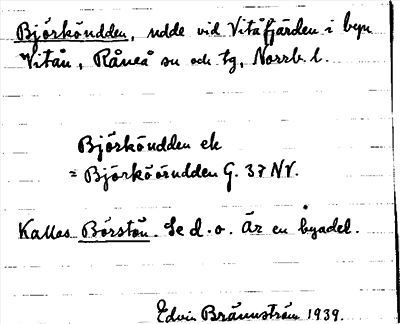 Björköudden, udde vid Vitåfjärden i byn
Vitån, Råneå sn och tg, Norrb. l.
Björköudden ek
= Björköörudden G. 37 NV.
Kallas Börstön. Se d. o. Är en byadel.
Edvin Brännström 1939.